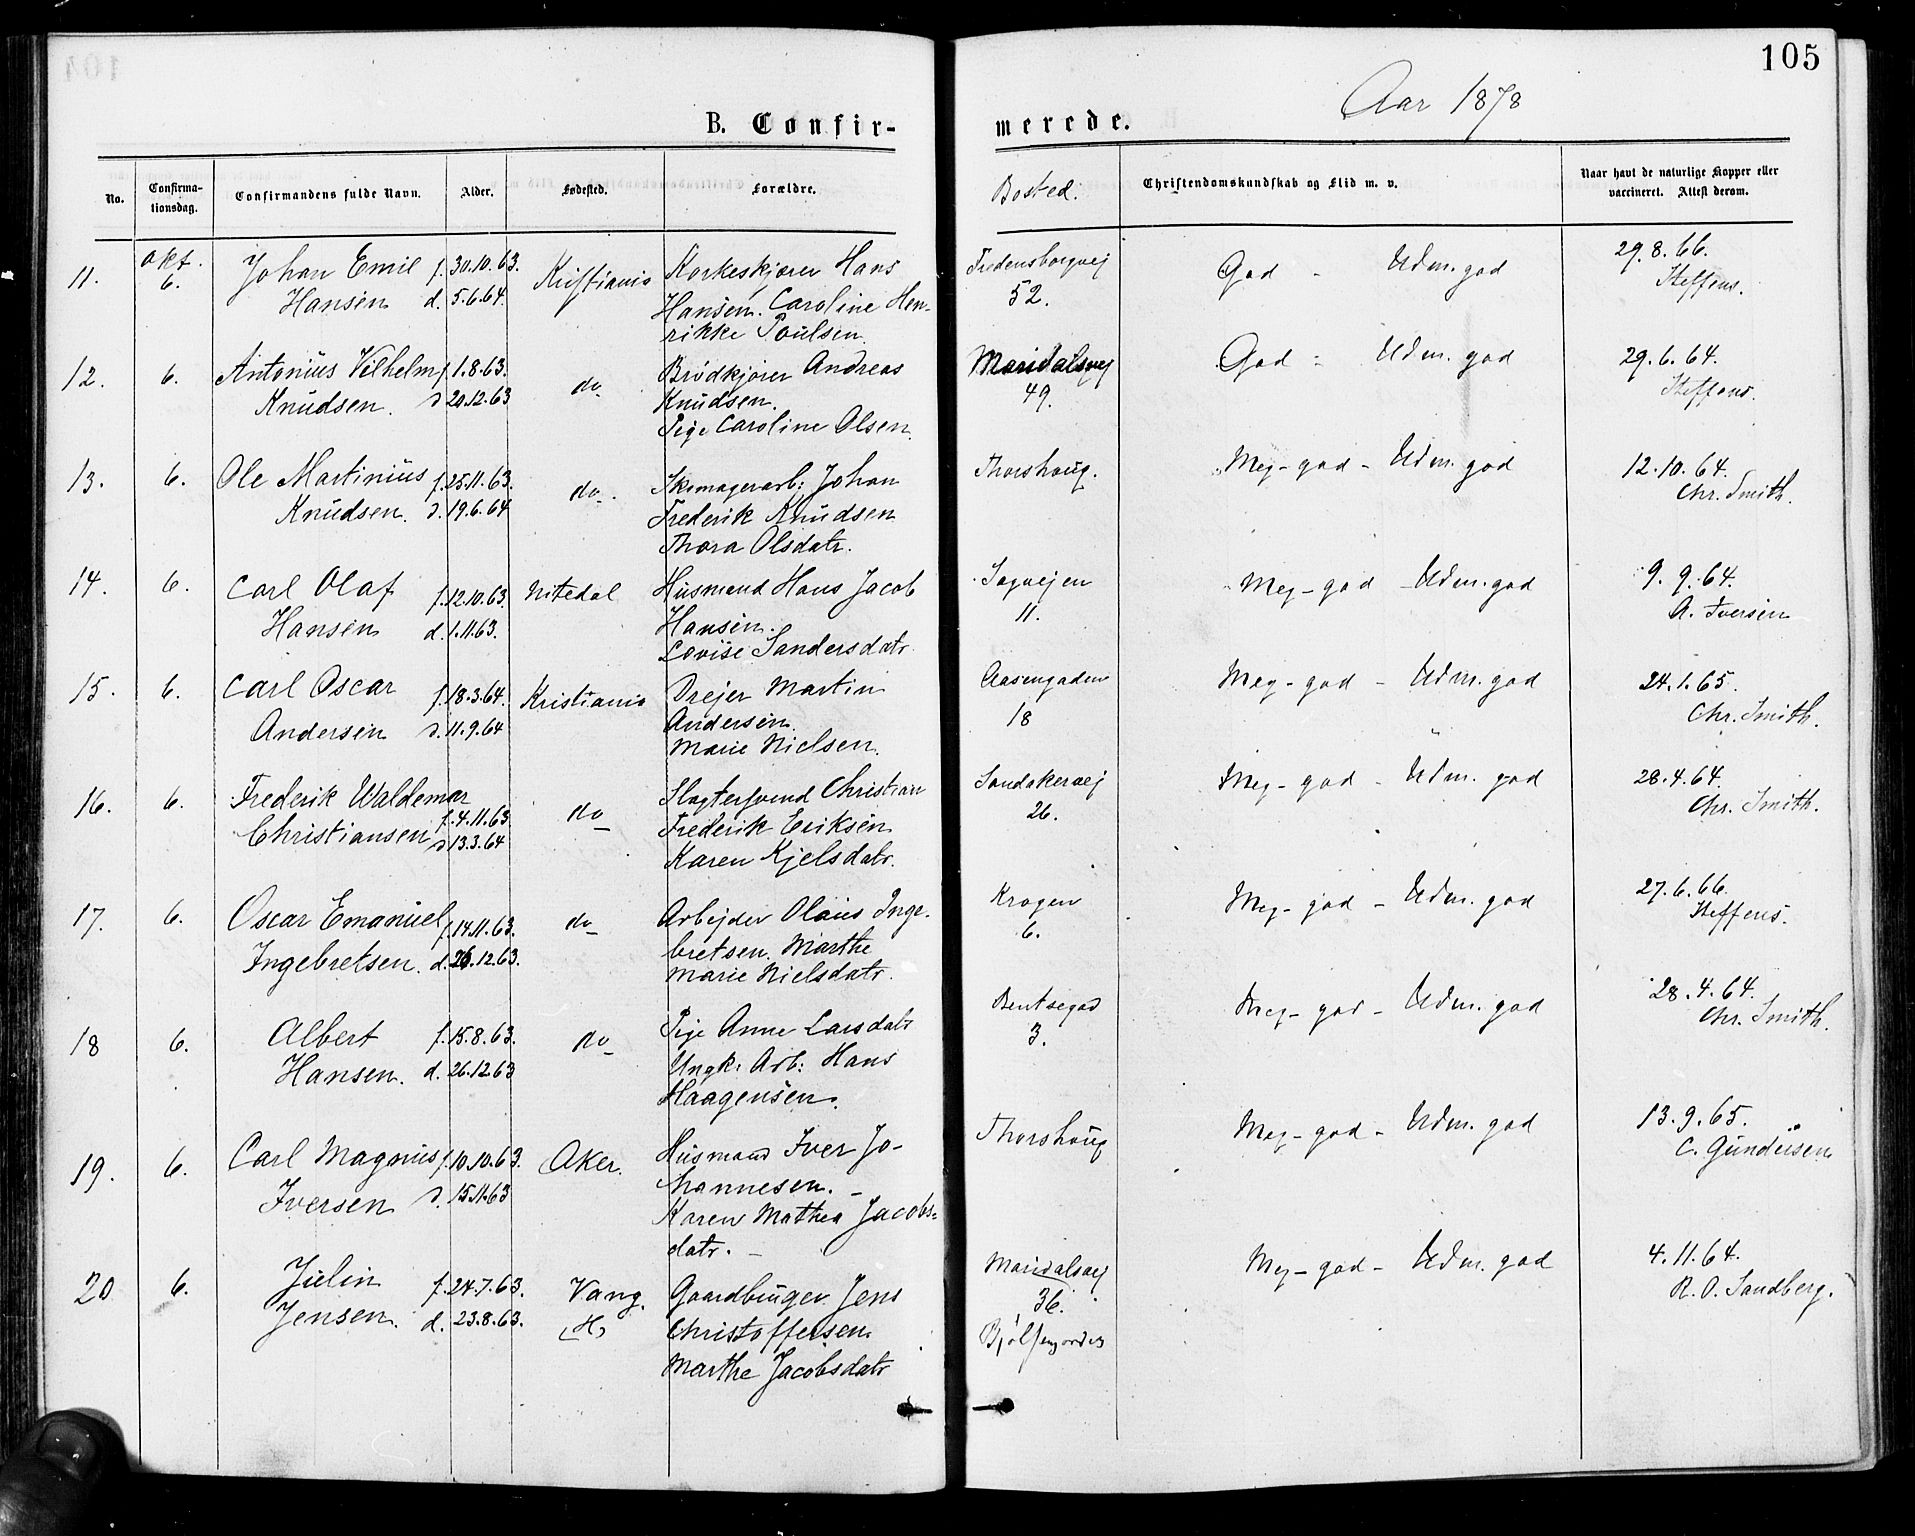 105
Aar 1878
B. Confir-
merede.
No.
Confirma-
tionsdag.
Confirmandens fulde Navn.
Alder.
Fødested.
Forældre.
Bosted.
Christendomskundskab og Flid m. v.
Naar havt de naturlige Kopper eller
vaccineret. Attest derom.
11. Okt. 6. Johan Emil f. 30.10.63. Kristiania Hans Fredensborgvej God - Udm. god 29.8.66.
Hansen d. 5.6.64. Hansen. Caroline Hen- 52. Steffens.
rikke Poulsen
12. 6. Antonius Vilhelm f. 1.8.63. do Brødkjører Andreas Maridalsvej God - Udm. god 29.6.64.
Knudsen. d. 20.12.63 Knudsen. 49. Steffens.
Pige Caroline Olsen.
13. 6. Ole Martinius f. 25.11.63. do Skomagerarb: Johan Thorshoug. Meg-god - Udm. god 12.10.64.
Knudsen. d. 19.6.64 Frederik Knudsen Chr. Smith.
Thora Olsdatr.
14. 6. Carl Olaf f. 12.10.63. Nitedal Husmand Hans Jacob Sagvejen Meg-god - Udm. god 9.9.64.
Hansen d. 1.11.63. Hansen. 11. A. Iversen
Lovise Sandersdatr.
15. 6. Carl Oscar f. 18.3.64. Kristiania Drejer Martin Aasengaden Meg-god - Udm. god 24.1.65.
Andersen d. 11.9.64 Andersen. 18 Chr. Smith.
Marie Nielsen.
16. 6. Frederik Waldemar f. 4.11.63. do Slagtersvend Christian Sandakervej Meg-god - Udm. god 28.4.64.
Christiansen d. 13.3.64 Frederik Eriksen 26. Chr. Smith.
Karen Kjelsdatr.
17. 6. Oscar Emanuel f. 14.11.63. do Arbejder Olaus Inge- Krogen Meg-god - Udm. god 27.6.66.
Ingebretsen. d. 26.12.63. bretsen. Marthe 6. Steffens.
Marie Nielsdatr.
18 6. Albert f. 15.8.63. do Pige Anne Larsdatr Bentsegad Meg-god - Udm. god 28.4.64.
Hansen. d. 26.12.63 Ungk: Arb: Hans 3. Chr. Smith.
Haagensen.
19. 6. Carl Magnus f. 10.10.63. Aker. Husmand Iver Jo- Thorshoug Meg-god - Udm. god 13.9.65.
Iversen d. 15.11.63 hannesen. - C. Gundersen
Karen Mathea Jacobs-
datr. -
20 6. Julin f. 24.7.63. Vang. Gaardbruger Jens Maridalsvej Meg-god - Udm. god 4.11.64.
Jensen. d. 23.8.63. (H) Christoffersen 36. R. O. Sandberg.
Marthe Jacobsdatr